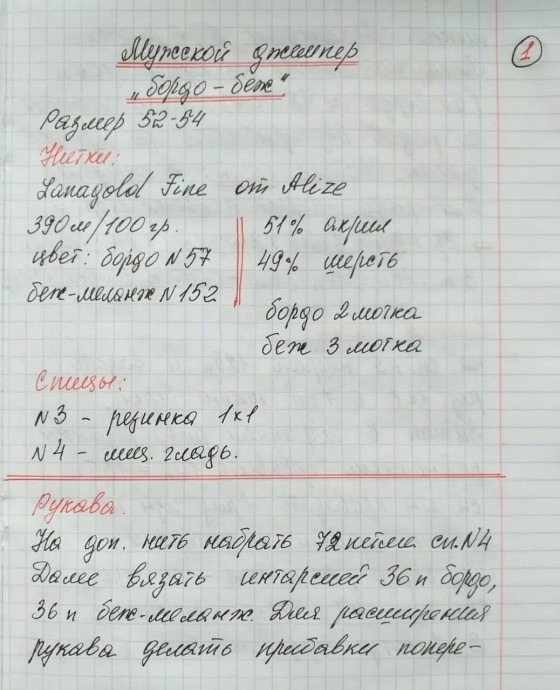 Мужской джемпер
1
„бордо – беж"
Размер 52-54
Нитки:
Lanagold Fine от Alize
390м/100гр.
51% акрил
цвет: бордо N57
49% шерсть
беж-меланж N152
бордо 2 мотка
беж 3 мотка
Спицы:
N3 – резинка 1х1
N4 – лиц. гладь.
Рукава.
На доп. нить набрать 72 петли сп. N4
Далее вязать интарсией 36 п бордо,
36 п беж-меланж. Для расширения
рукава делать прибавки попере-